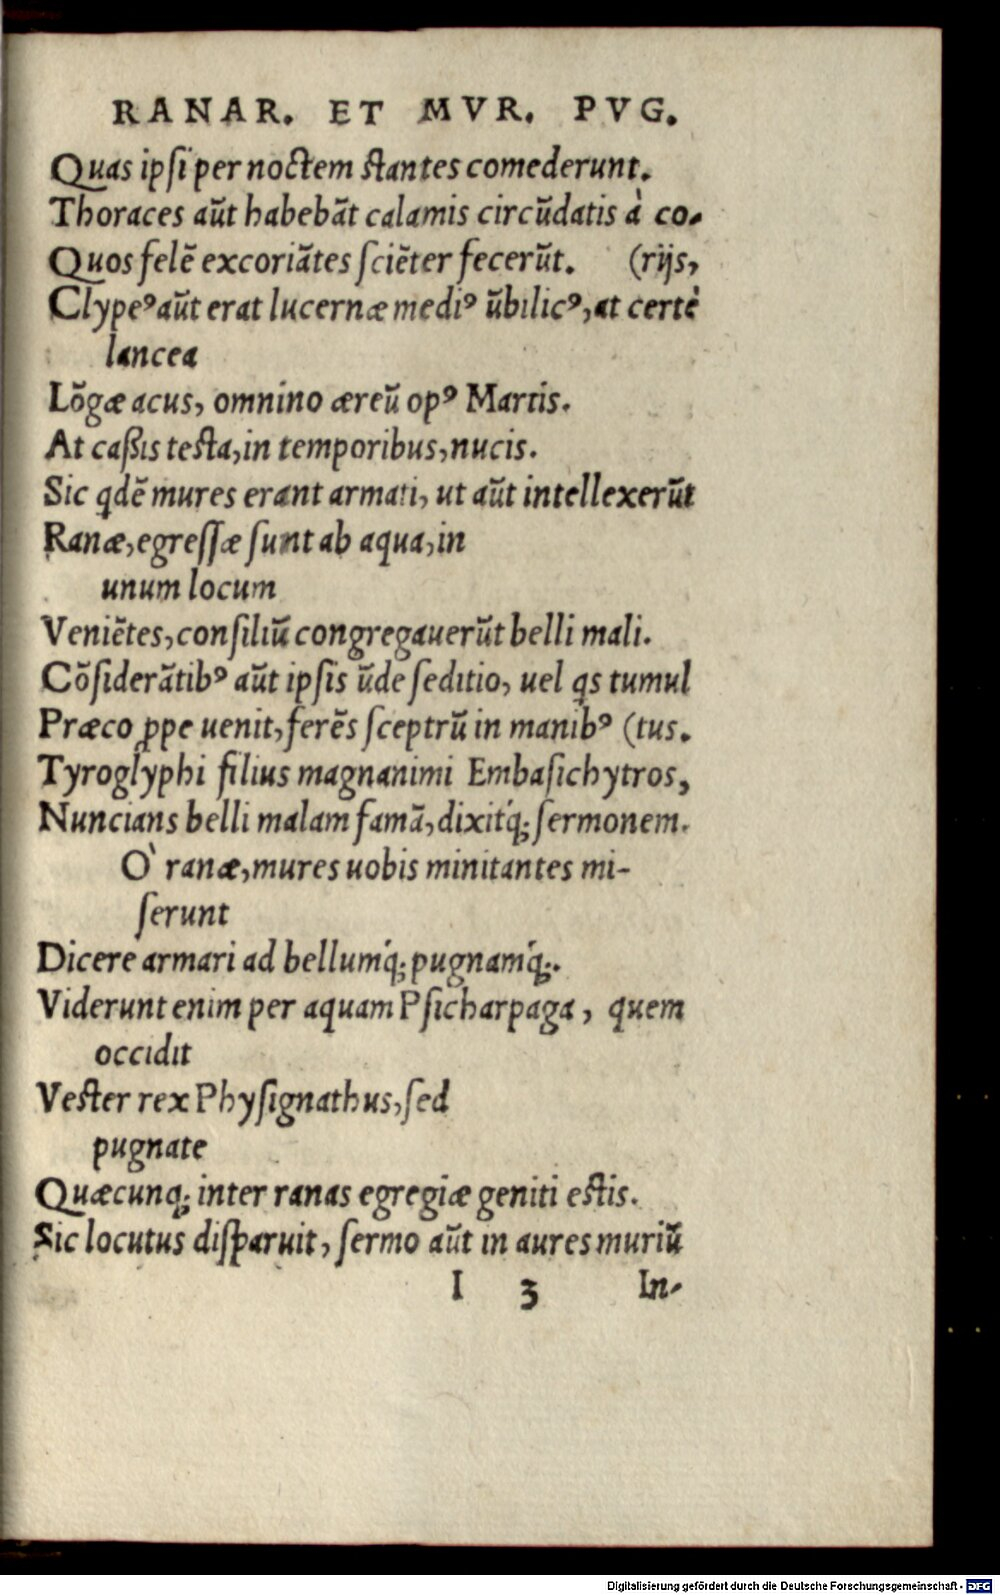 RANAR. ET MVR. PVG.
Quas ipſi per noctem ſtantes comederunt.
Thoraces aũt habebãt calamis circũdatis à co-
Quos felẽ excoriãtes ſciẽter fecerũt. (rijs,
Clypeꝰ aũt erat lucernæ mediꝰ ũbilicꝰ, at certè
lancea
Lõgæ acus, omnino æreũ opꝰ Martis.
At caßis teſta, in temporibus, nucis.
Sic qdẽ mures erant armati, ut aũt intellexerũt
Ranæ, egreſſæ ſunt ab aqua, in
unum locum
Veniẽtes, conſiliũ congregauerũt belli mali.
Cõſiderãtibꝰ aũt ipſis ũde ſeditio, uel qs tumul
Præco ꝓpe uenit, ferẽs ſceptrũ in manibꝰ (tus.
Tyroglyphi filius magnanimi Embaſichytros,
Nuncians belli malam famã, dixitq́; ſermonem.
O' ranæ, mures uobis minitantes mi-
ſerunt
Dicere armari ad bellumq́; pugnamq́;.
Viderunt enim per aquam Pſicharpaga, quem
occidit
Veſter rex Phyſignathus, ſed
pugnate
Quæcunq; inter ranas egregiæ geniti eſtis.
Sic locutus diſparuit, ſermo aũt in aures muriũ
I 3 In-
Digitalisierung gefördert durch die Deutsche Forschungsgemeinschaft - DFG